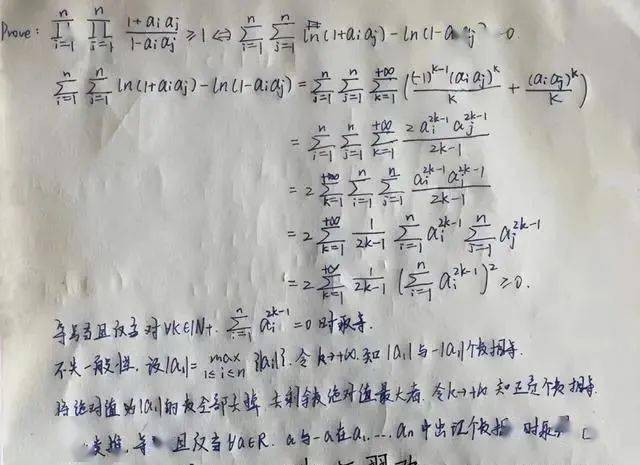 Prove: ∏_{i=1}^{n} ∏_{j=1}^{n} (1+a_i a_j)/(1-a_i a_j) ≥ 1 ⇔ ∑_{i=1}^{n} ∑_{j=1}^{n} ln(1+a_i a_j) - ln(1-a_i a_j) 0.
∑_{i=1}^{n} ∑_{j=1}^{n} ln(1+a_i a_j) - ln(1-a_i a_j) = ∑_{i=1}^{n} ∑_{j=1}^{n} ∑_{k=1}^{+∞} ( (-1)^{k-1}(a_i a_j)^k / k + (a_i a_j)^k / k )
= ∑_{i=1}^{n} ∑_{j=1}^{n} ∑_{k=1}^{+∞} 2 a_i^{2k-1} a_j^{2k-1} / 2k-1
= 2 ∑_{k=1}^{+∞} ∑_{i=1}^{n} ∑_{j=1}^{n} a_i^{2k-1} a_j^{2k-1} / 2k-1
= 2 ∑_{k=1}^{+∞} 1/2k-1 ∑_{i=1}^{n} a_i^{2k-1} ∑_{j=1}^{n} a_j^{2k-1}
= 2 ∑_{k=1}^{+∞} 1/2k-1 (∑_{i=1}^{n} a_i^{2k-1})^2 ≥ 0.
等号当且仅当对 ∀k∈ℕ+. ∑_{i=1}^{n} a_i^{2k-1} = 0 时取等.
不失一般性, 设|a_1| = max_{1≤i≤n} {|a_i|}. 令 k→+∞. 知 |a_1| 与 -|a_1| 个数相等.
将绝对值为|a_1|的数全部去掉. 去剩余数绝对值最大者. 令k→+∞ 知正负个数相等.
类推, 等 且仅当 ∀a∈R. a与-a在a_1, ..., a_n 中出现个数 时取